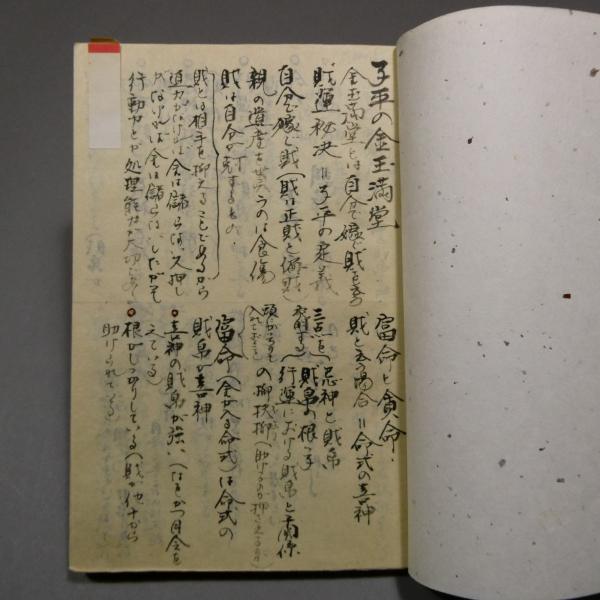 子平の金玉満堂
金玉満堂とは自分で嫁ぐ財を言う
財運秘決=子平の定義
自分で嫁ぐ財(財は正財と偏財)
親の遺産を貰うのは食傷
財は自分が剋するもの、
財とは相手を抑えることであるから
迫力がなければ金は儲らない、又押し
がなければ金は儲らない、したがって
行動力とか処理能力が大切である
富命と貧命、
財と言う場合=命式の喜神
忌神と財帛
三点を
財帛の根
行運における財帛と関係
の抑扶
(助けるのか抑さえるのか)
頭に
入れておこと
富命(金が入る命式)は命式の
財帛が喜神
喜神の財帛が強い、
えている)
根がしっかりしている(財が他干から
助けられている)